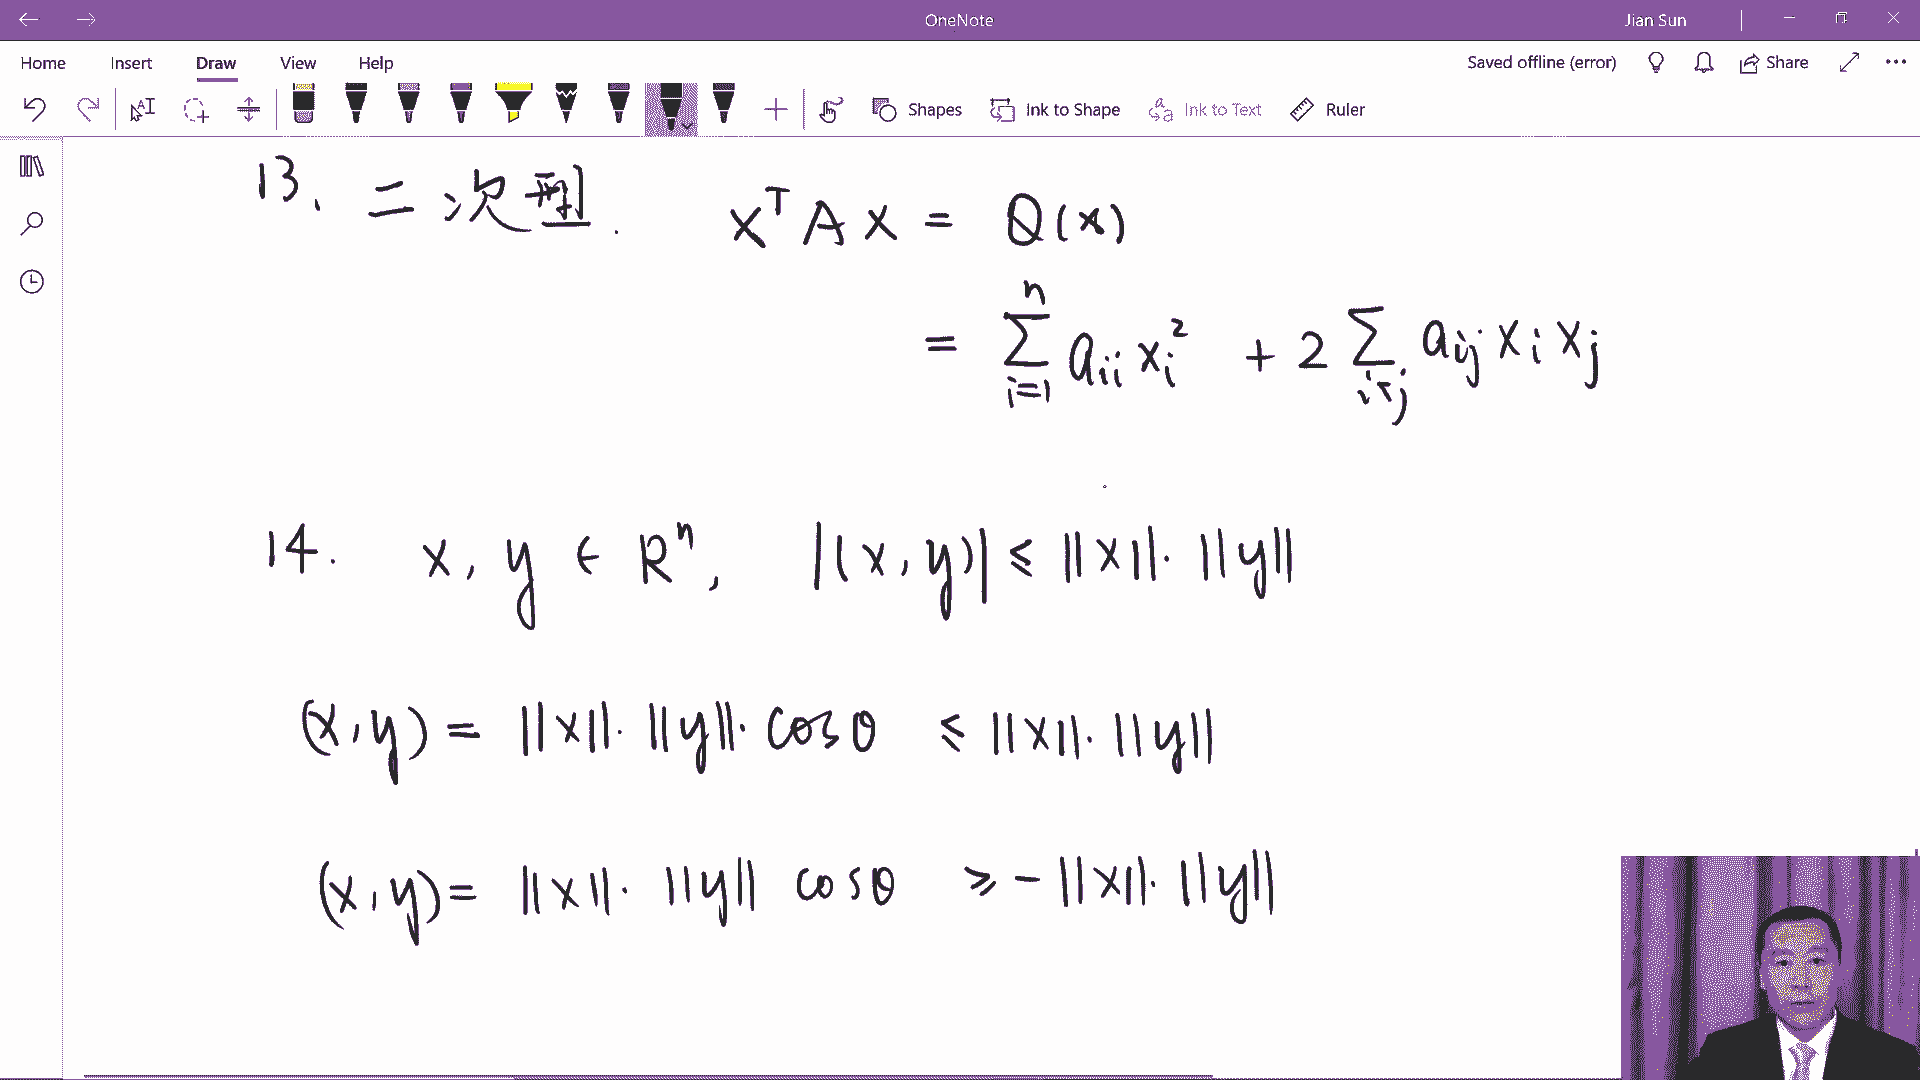 OneNote
Jian Sun
Home Insert Draw View Help
Saved offline (error) Share
Shapes Ink to Shape Ink to Text Ruler
13. 二次型. xᵀAx = Q(x)
= ∑ᵢ₌₁ⁿ aᵢᵢxᵢ² + 2∑_{i<j} aᵢⱼxᵢxⱼ
14. x, y ∈ Rⁿ, |(x, y)| ≤ ||x||·||y||
(x, y) = ||x||·||y||·cosθ ≤ ||x||·||y||
(x, y) = ||x||·||y|| cosθ ≥ -||x||·||y||